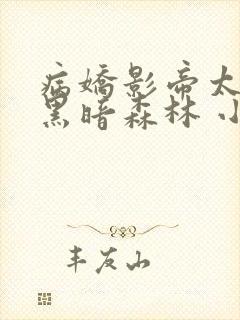 病嬌影帝太
黑暗森林 小
丰友山